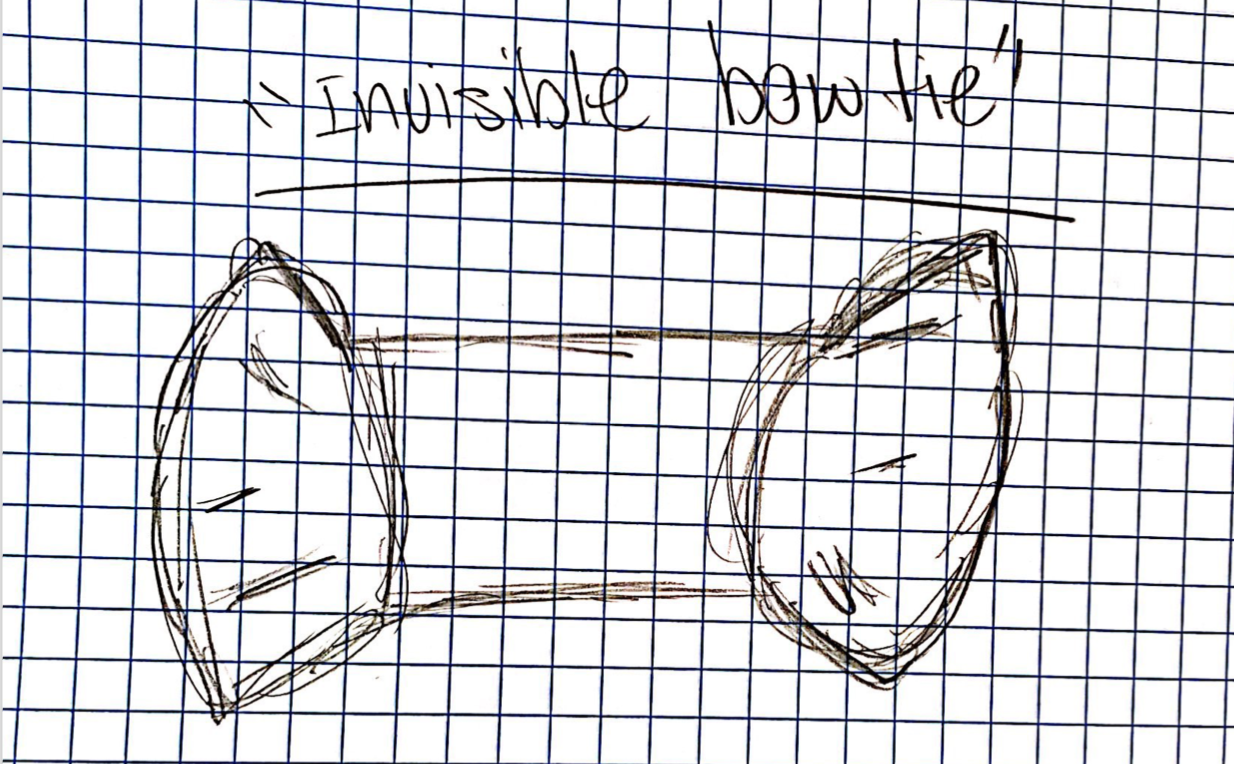 "Invisible bowtie"